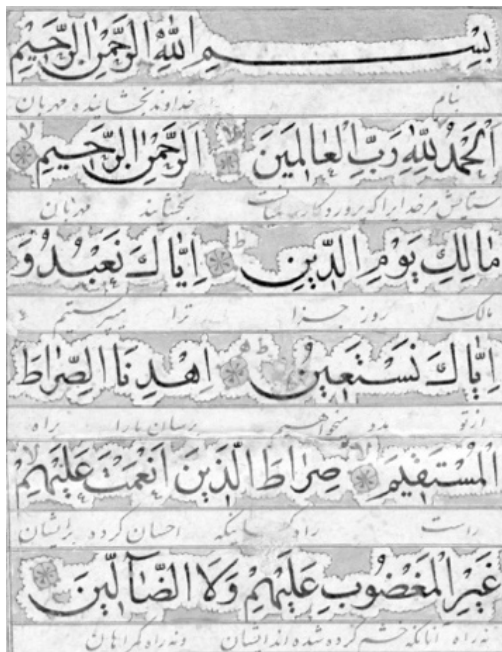 بِسْمِ اللّٰهِ الرَّحْمٰنِ الرَّحِيمِ
بنام خداوند بخشاینده مهربان
اَلْحَمْدُ لِلّٰهِ رَبِّ الْعَالَمِينَ الرَّحْمٰنِ الرَّحِيمِ
ستایش مر خدایرا که پروردگار بخشاینده مهربان
مَالِكِ يَوْمِ الدِّينِ اِيَّاكَ نَعْبُدُ وَ
مالک روز جزا ترا میپرستیم و
اِيَّاكَ نَسْتَعِينُ اِهْدِنَا الصِّرَاطَ
از تو مدد میخواهیم برسان ما را براه
الْمُسْتَقِيمَ صِرَاطَ الَّذِينَ اَنْعَمْتَ عَلَيْهِمْ
راست راه آنانکه احسان کرده برایشان
غَيْرِ الْمَغْضُوبِ عَلَيْهِمْ وَلَا الضَّآلِّينَ
نه راه آنانکه خشم کرده شده اند ایشان و نه راه گمراهان